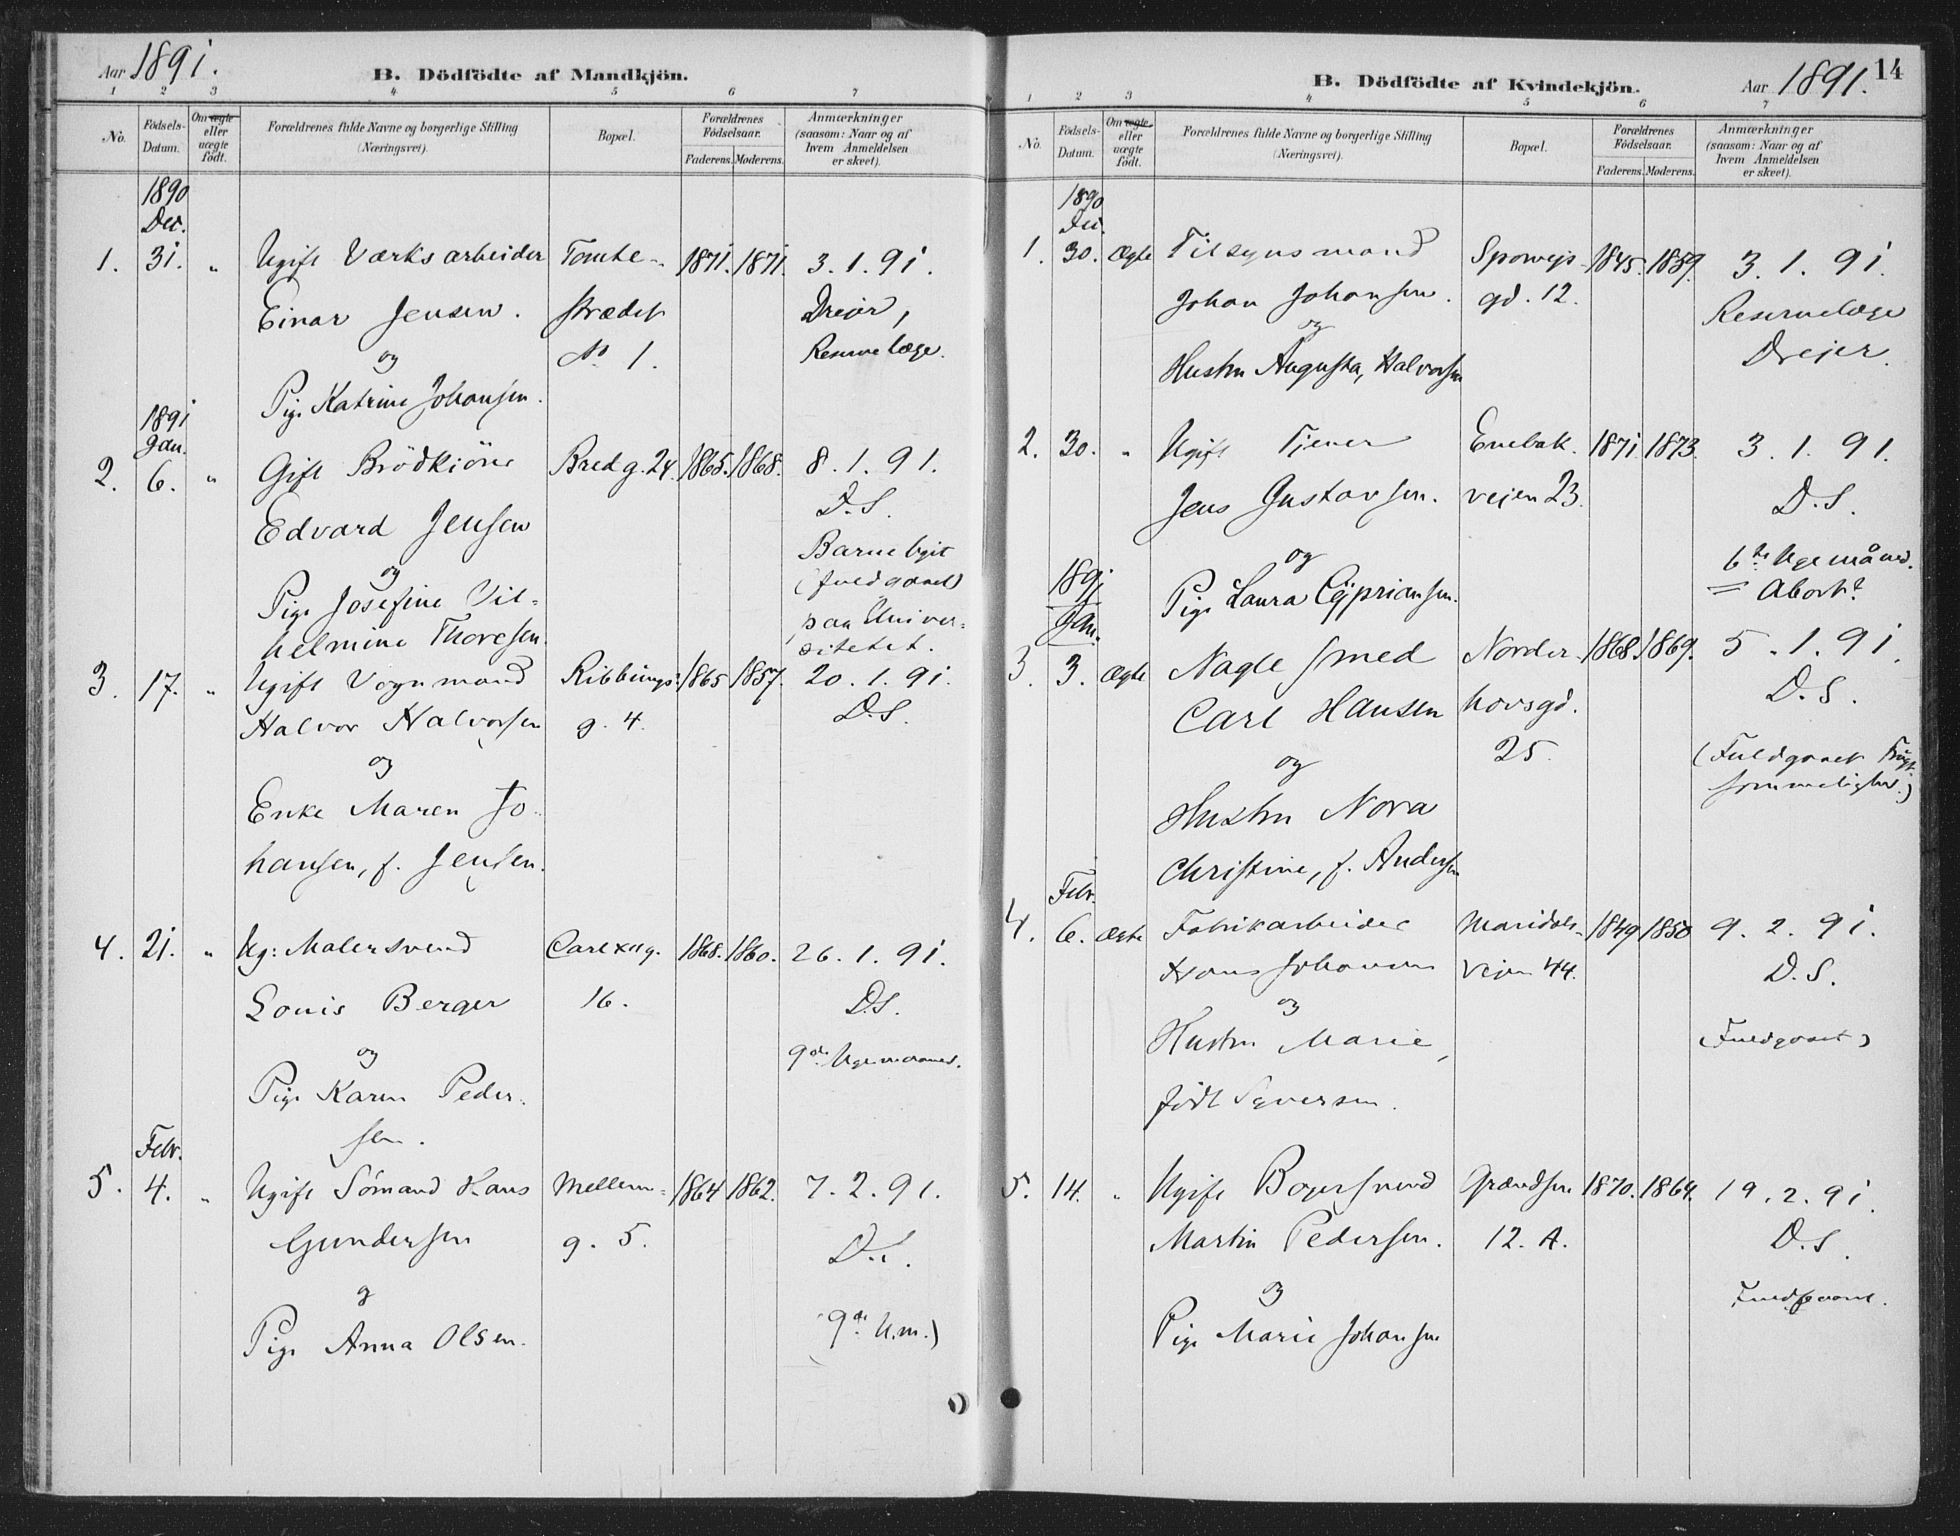 Aar 1891.
B. Dödfödte af Mandkjön.
1 2 3 4 5 6 7
No.
Födsels-Datum.
Om ægte eller uægte født.
Forældrenes fulde Navne og borgerlige Stilling
(Næringsvei).
Bopæl.
Forældrenes Födselsaar.
Faderens. Moderens.
Anmærkninger
(saasom: Naar og af
hvem Anmeldelsen
er skeet).
1890
Dec.
1. 31. " Ugift Værksarbeider Tomte- 1871. 1871. 3.1.91.
Einar Jensen. strædet Dreier,
og No 1. Reservelæge.
Pige Katrine Johansen.
1891
Jan.
2. 6. " Gift Brödkjörer Bredg. 24. 1865. 1868. 8.1.91.
Edvard Jensen D.S.
og Barneliget
Pige Josefine Vil- (fuldgaaet)
helmine Thoresen. paa Univer-
sitetet.
3. 17. " Ugift Vognmand Ribbungs- 1865 1857. 20.1.91.
Halvor Halvorsen g. 4. D.S.
og
Enke Maren Jo-
hansen, f. Jensen.
4. 21. " Ug: Malersvend Carl XII g. 1868. 1860. 26.1.91.
Louis Berger 16. D.S.
og 9de Ugemaaned.
Pige Karen Peder-
sen.
Febr.
5. 4. " Ugift Sömand Hans Mellem- 1864 1862. 7.2.91.
Gundersen g. 5. D.S.
og
Pige Anna Olsen. (9de U.m.)
B. Dödfödte af Kvindekjön.
Aar 1891. 14
1 2 3 4 5 6 7
No.
Födsels-Datum.
Om ægte eller uægte födt.
Forældrenes fulde Navne og borgerlige Stilling
(Næringsvei).
Bopæl.
Forældrenes Födselsaar.
Faderens. Moderens.
Anmærkninger
(saasom: Naar og af
hvem Anmeldelsen
er skeet).
1890
Dec.
1. 30. Ægte Tilsynsmand Sporvejs- 1845. 1859. 3.1.91.
Johan Johansen. gd. 12. Reservelæge
og Drejer.
Hustru Augusta, Halvorsen
2. 30. " Ugift Tjener Enebak- 1871. 1873. 3.1.91.
Jens Gustavsen. vejen 23. D.S.
og 6te Ugemåned.
Pige Laura Cypriansen. = Abort?
1891
Jan.
3. 3. Ægte Nagle smed Norder- 1868. 1869. 5.1.91.
Carl Hansen hovsgd. D.S.
og 25.
Hustru Nora (Fuldgaaet Frugt-
sommelighed.)
Christine, f. Andersen
Febr.
4. 6. Ægte Fabrikarbeider Maridals- 1849 1850 9.2.91.
Hans Johansen Vejen 44. D.S.
og
Hustru Marie, (Fuldgaaet)
födt Syversen.
5. 14. " Ugift Bagersvend Grændsen 1870. 1864. 19.2.91.
Martin Pedersen. 12. A. D.S.
og Fuldgaaet.
Pige Marie Johansen